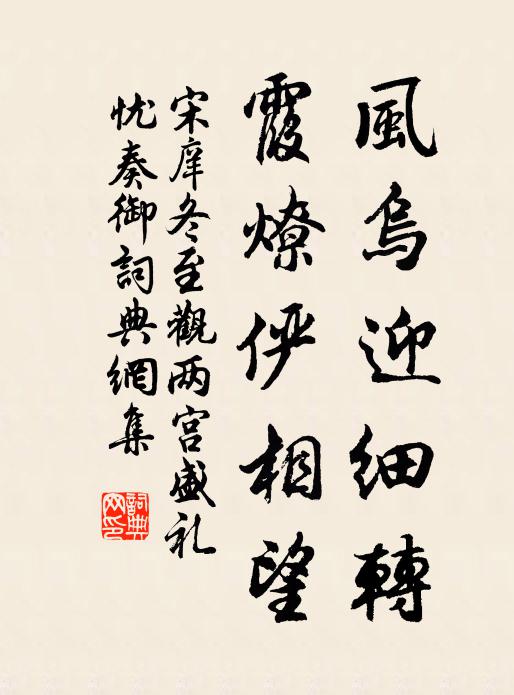 風烏迎細轉
霞燎俨相望
宋庠冬至觀两宫盛礼
忱奏御詞典網集
詞典网印